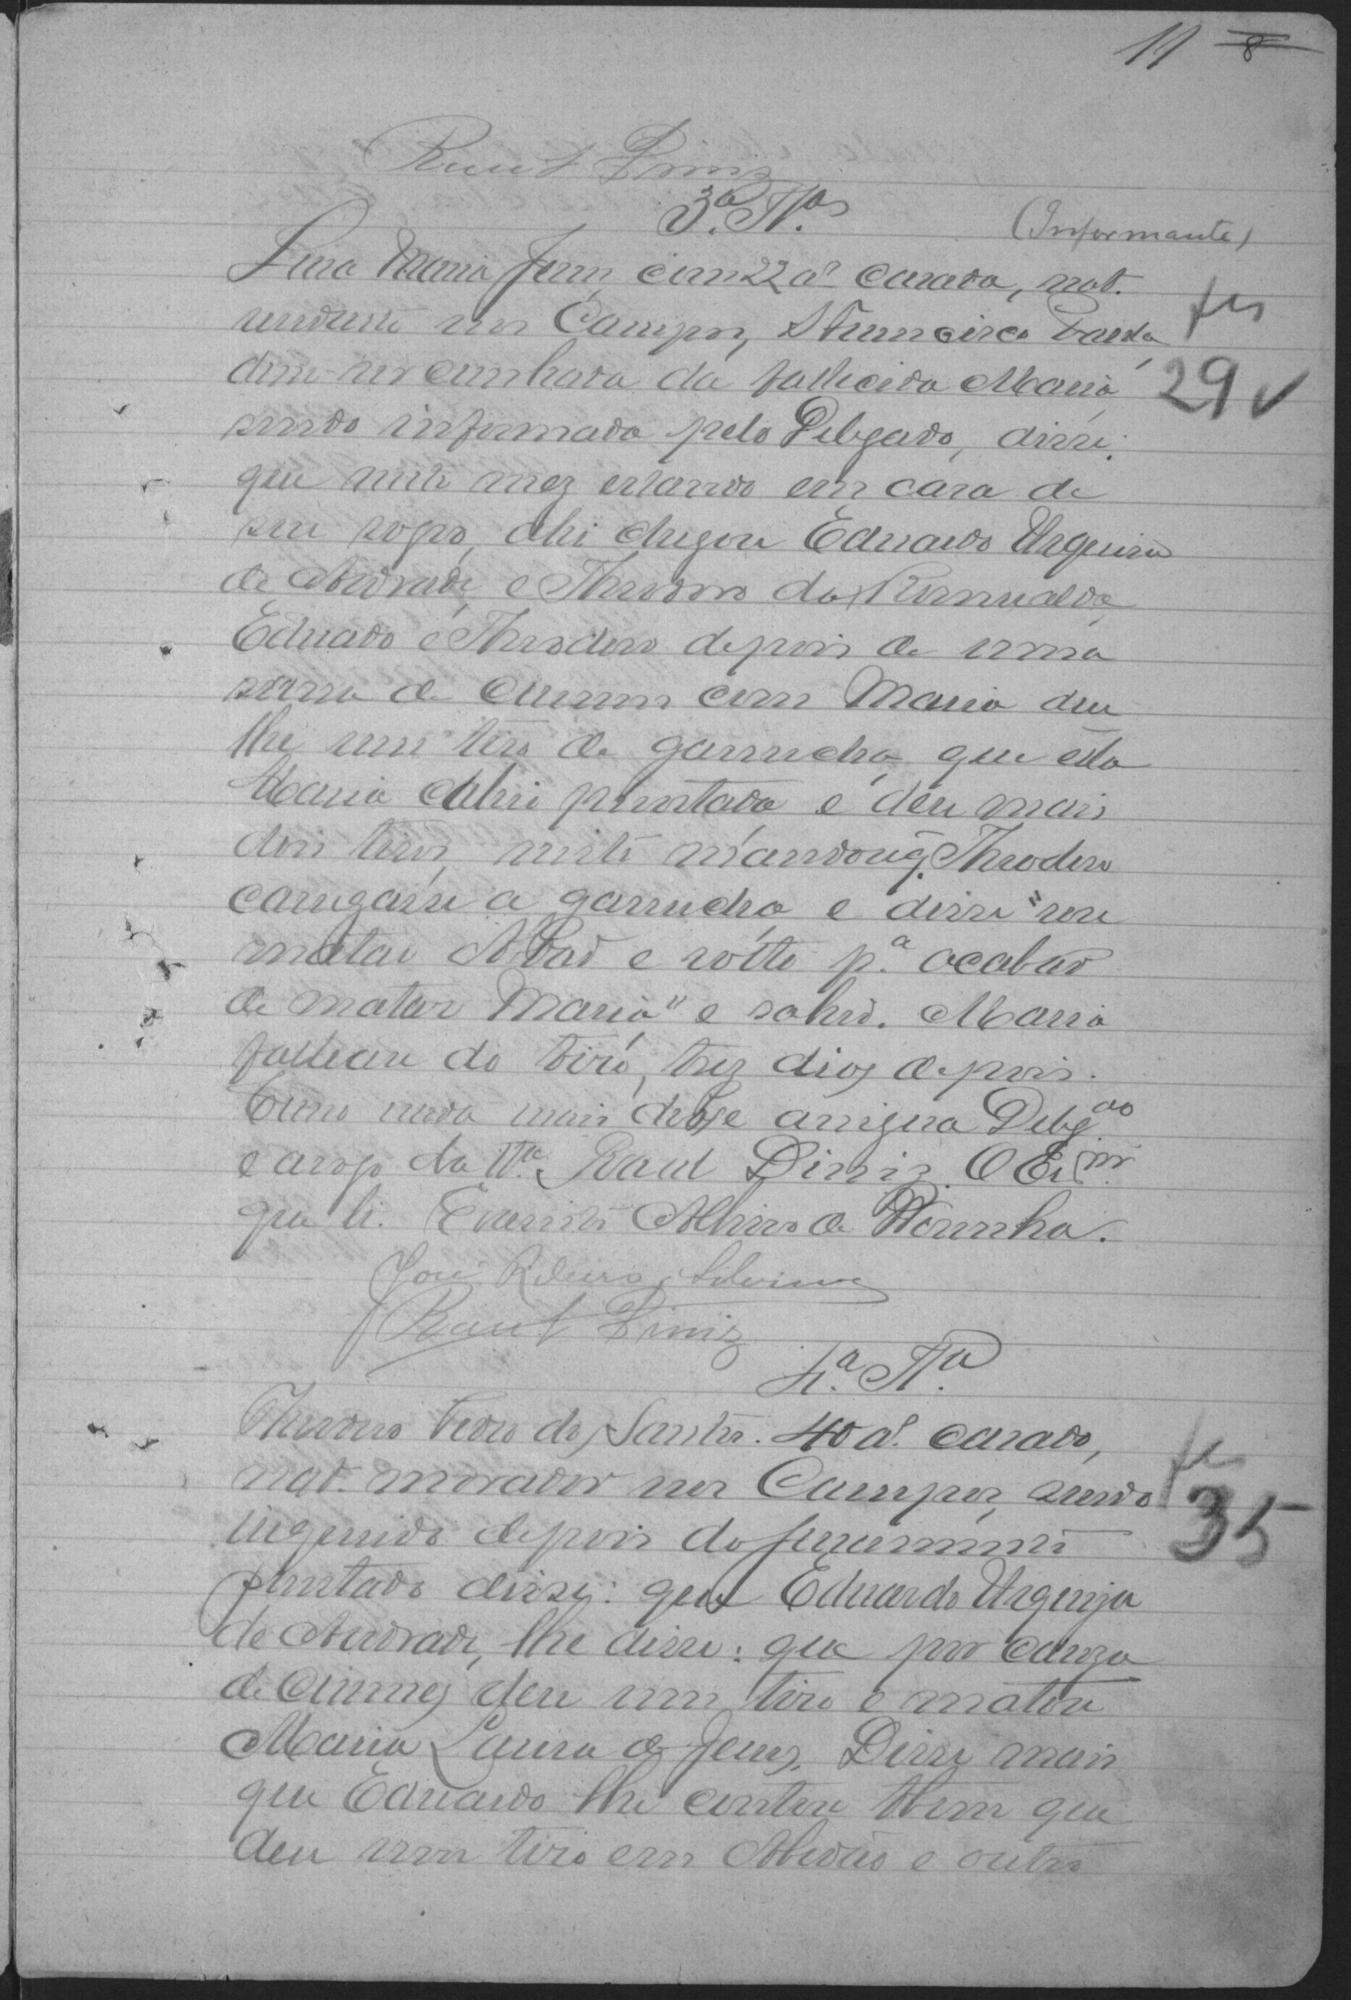 11 8
Raul Diniz
3.ª Tª
(Informante)
Maria Jesus, com 22 aˢ casada, nat.
residente nos Campos,
fls
29 v
dim ser cunhada da fallecida Maria,
sendo informada pelo Delgado, disse:
que neste mez estando em casa de
seu sogro, ahi chegou Eduardo Urquisa
de Andrade, e Theodoro da Romualda,
Eduado e Theodoro depois de uma
scena de ciumes com Maria deu
lhe um tiro de garrucha, que esta
Maria cahiu prostada e deu mais
dois tiros, neste mandou q. Theodoro
carregasse a garrucha e disse "vou
matar Abrão e volto p.ª acabar
de matar Maria" e sahiu. Maria
falleceu do tiro, trez dias depois.
Como nada mais disse assigna Delg.ᵈᵒ
e arogo da Tª. Raul Diniz. O Es.ᵐ
que li. Evaristo Albino de Noronha.
José Ribeiro Silvino
Raul Diniz
4.ª Tª
Theodoro Pedro dos Santos. 40 aˢ. casado,
nat. morador nos Campos, sendo
fls
35
inquerido depois do juramento
prestado disse: que Eduardo Urquiza
de Andrade, lhe disse: que por causa
de ciumes deu um tiro e matou
Maria Laura de Jesus. Disse mais
que Eduardo lhe contou tbem que
deu um tiro em Abrão e outro